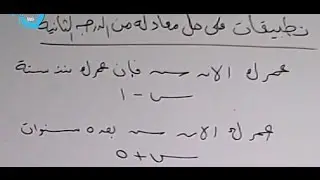 تطبيقات على حل معادلة من الدرجة الثانية
عمرك الآن س فإن عمرك منذ سنة
س - ١
عمرك الآن س بعد ٥ سنوات
س + ٥